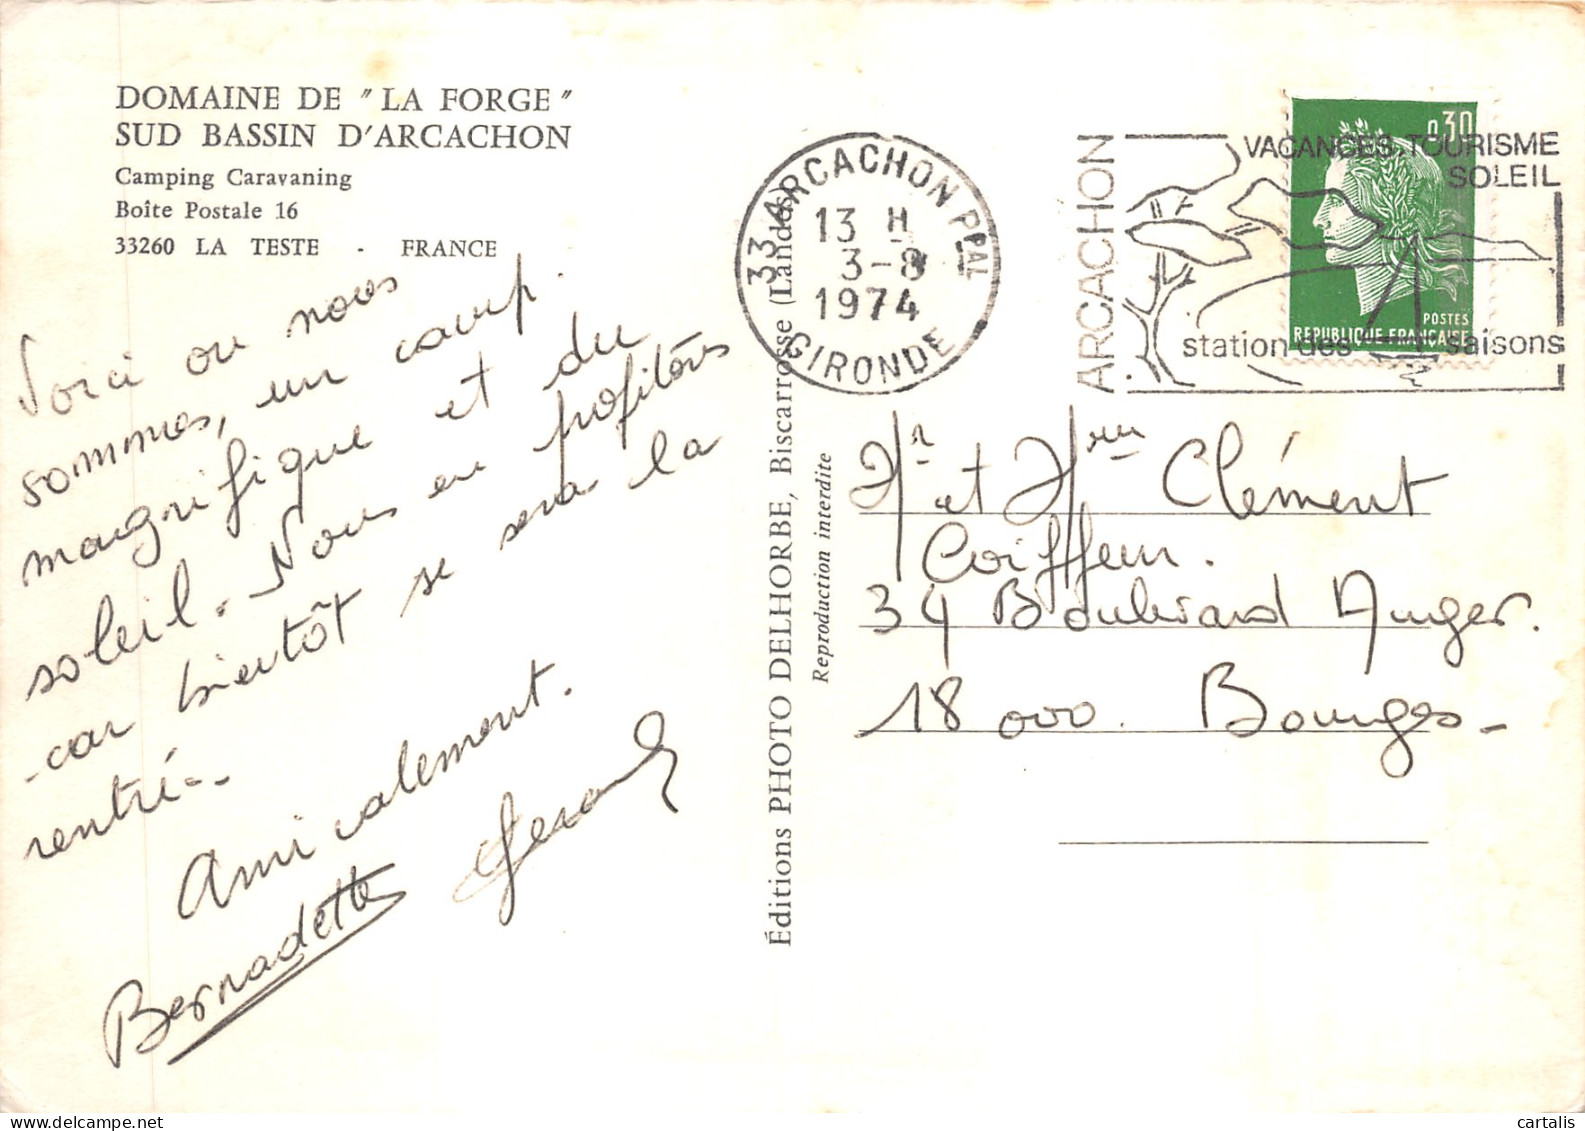 DOMAINE DE "LA FORGE"
SUD BASSIN D'ARCACHON
Camping Caravaning
Boîte Postale 16
33260 LA TESTE - FRANCE
Voici ou nous
sommes, un camp.
magnifique et du
soleil. Nous en profitons
car bientôt se sera la
rentré.
Amicalement.
Bernadette
Éditions PHOTO DELHORBE, Biscarrosse (Landes)
Reproduction interdite
33 ARCACHON PPAL
13 H
3-8
1974
GIRONDE
ARCACHON
VACANCES, TOURISME
SOLEIL
station des 4 saisons
0,30
POSTES
REPUBLIQUE FRANÇAISE
Mr et Mme Clément
Coiffeur.
34 Boulevard Auger.
18 000. Bourges-
cartalis